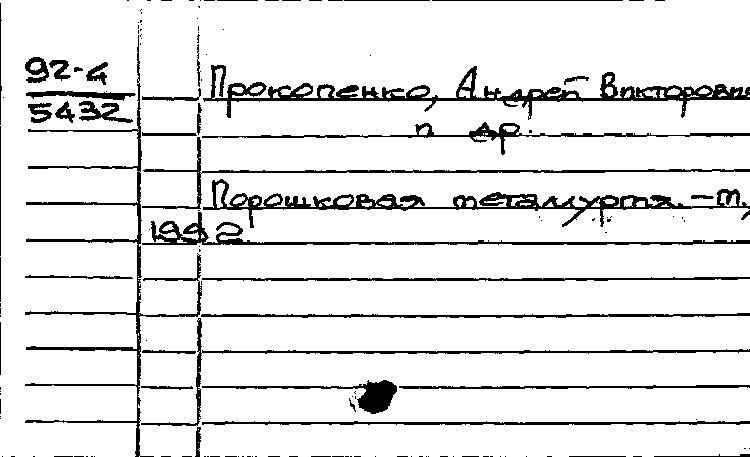 92-4
5432
Прокопенко, Андрей Викторович
и др.
Порошковая металлургия. - М.,
1992.